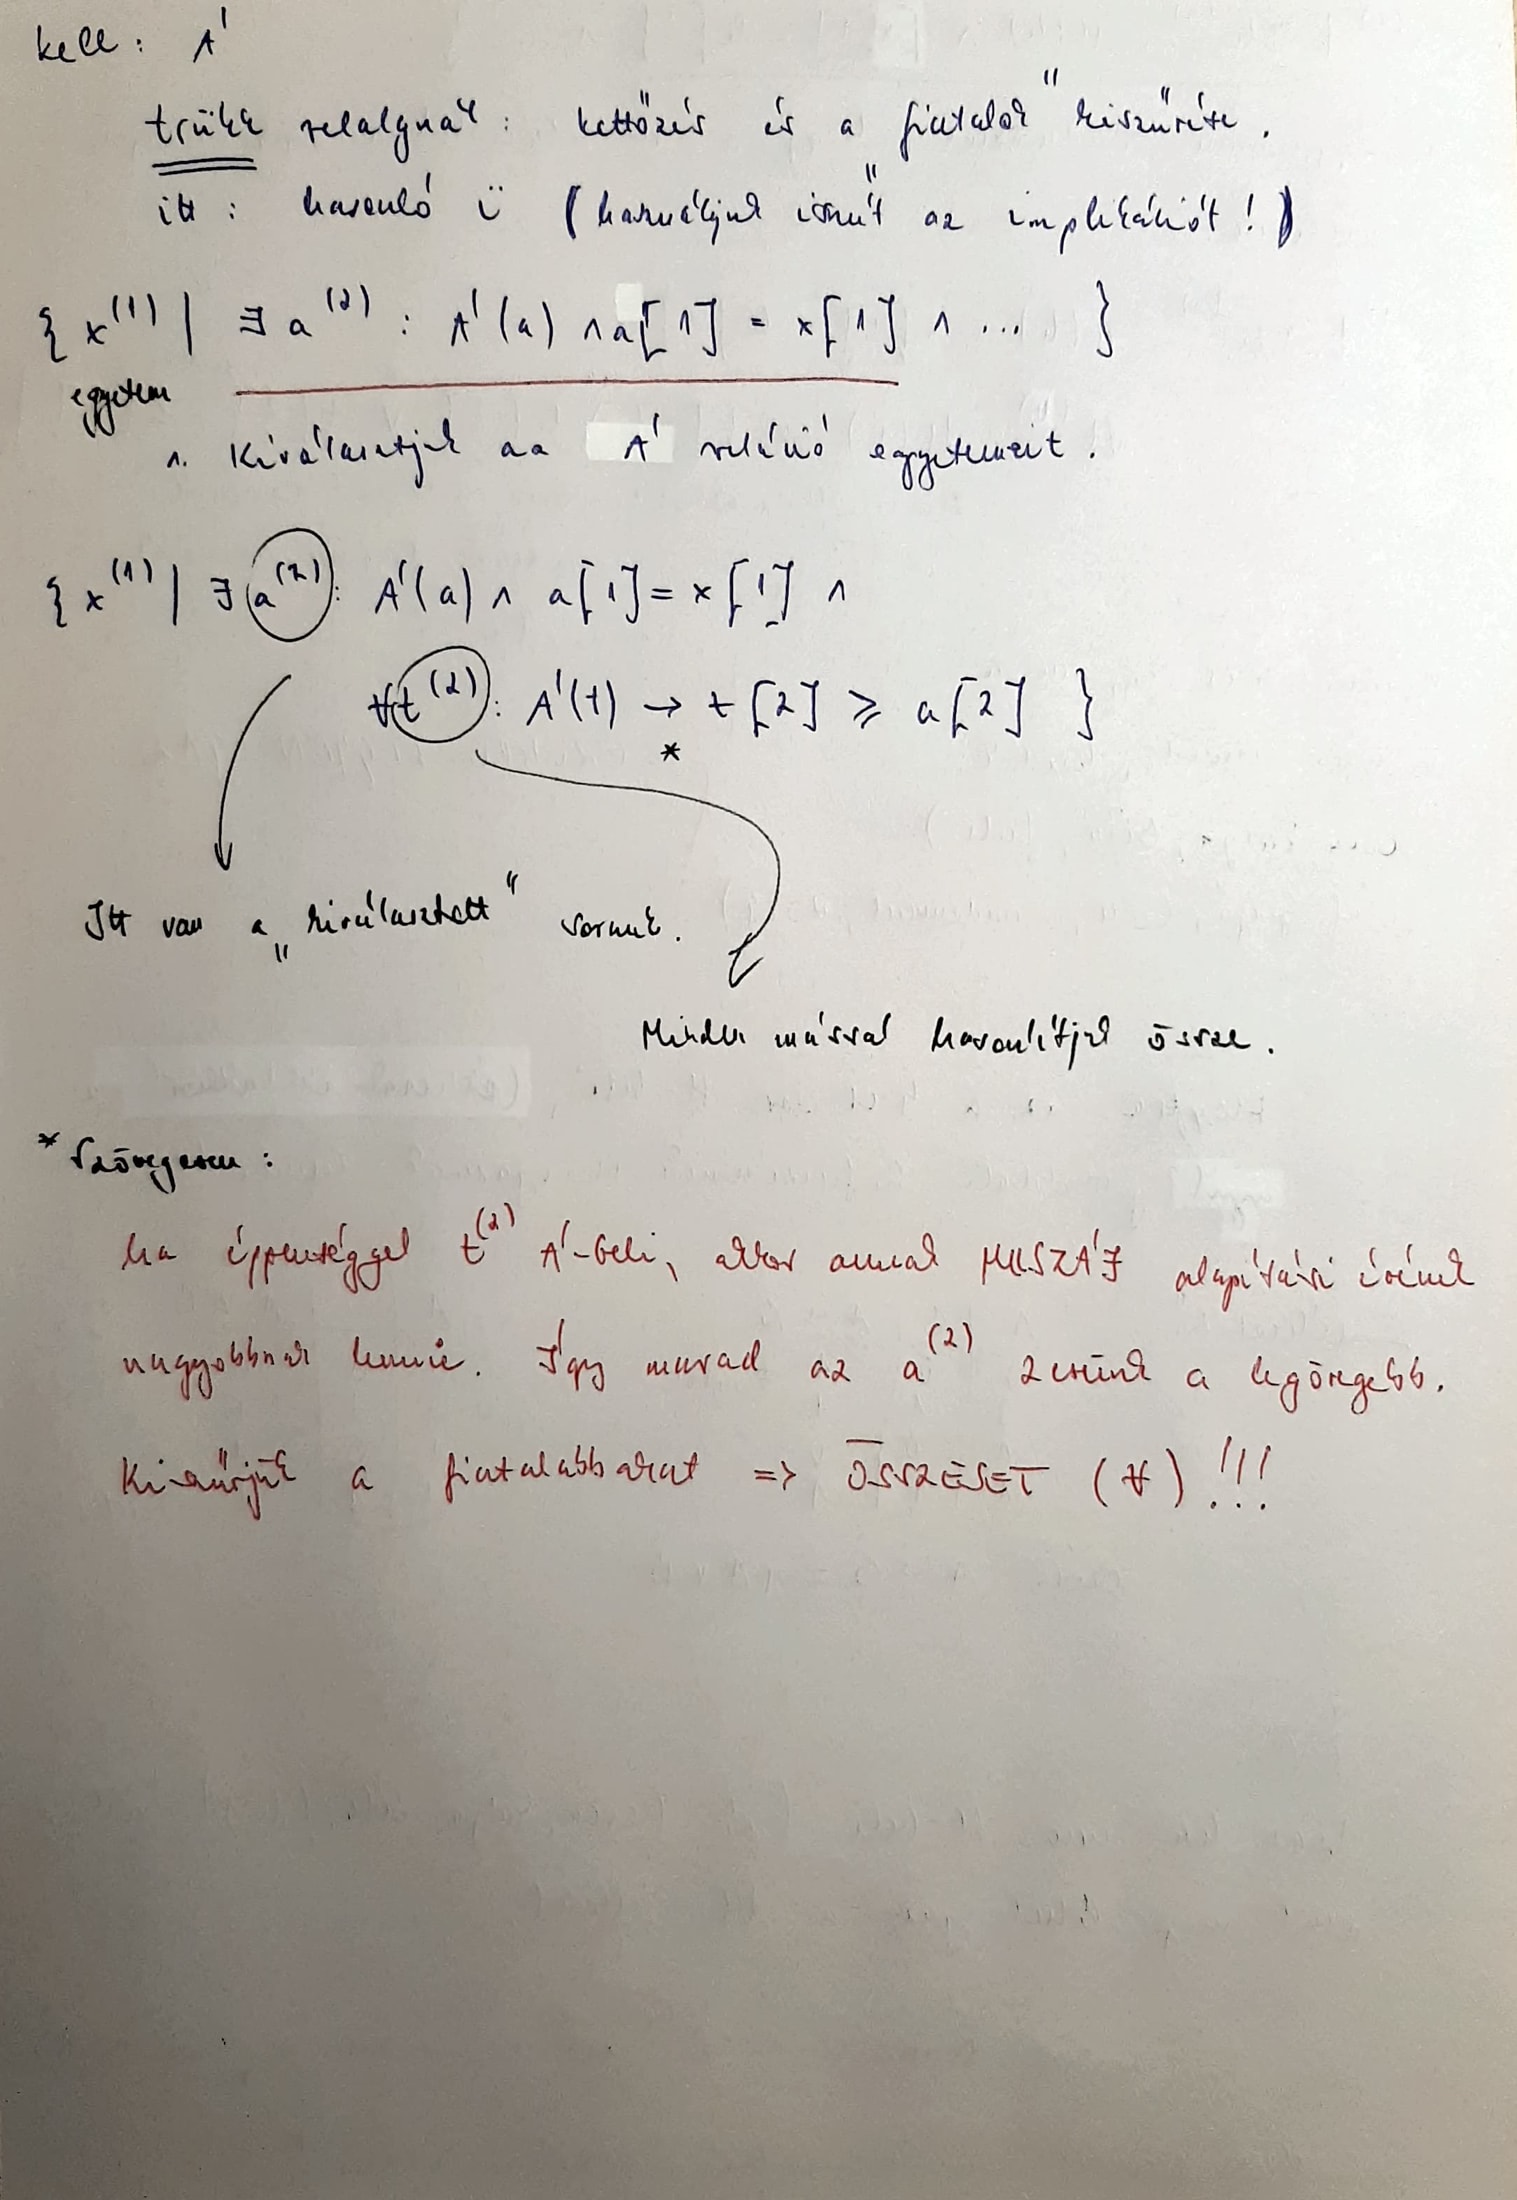 kell: A'
trükk relalgnál: kettőzés és a fiatalok" kiszűrése.
itt: hasonló ü (használjuk ismét az implikációt!)
{ x^(1) | ∃ a^(2) : A'(a) ∧ a[1] = x[1] ∧ ... }
egyetem
1. Kiválasztjuk az A' reláció egyetemeit.
{ x^(1) | ∃ a^(2): A'(a) ∧ a[1] = x[1] ∧
∀t^(2): A'(t) → t[2] ≥ a[2] }
*
Itt van a „kiválasztott" sorunk.
Minden mással hasonlítjuk össze.
* Szövegesen:
ha éppenséggel t^(2) A'-beli, akkor annak MUSZÁJ alapítási évének
nagyobbnak lennie. Így marad az a^(2) a legöregebb.
Kiszűrjük a fiatalabbakat => ÖSSZESET (∀)!!!